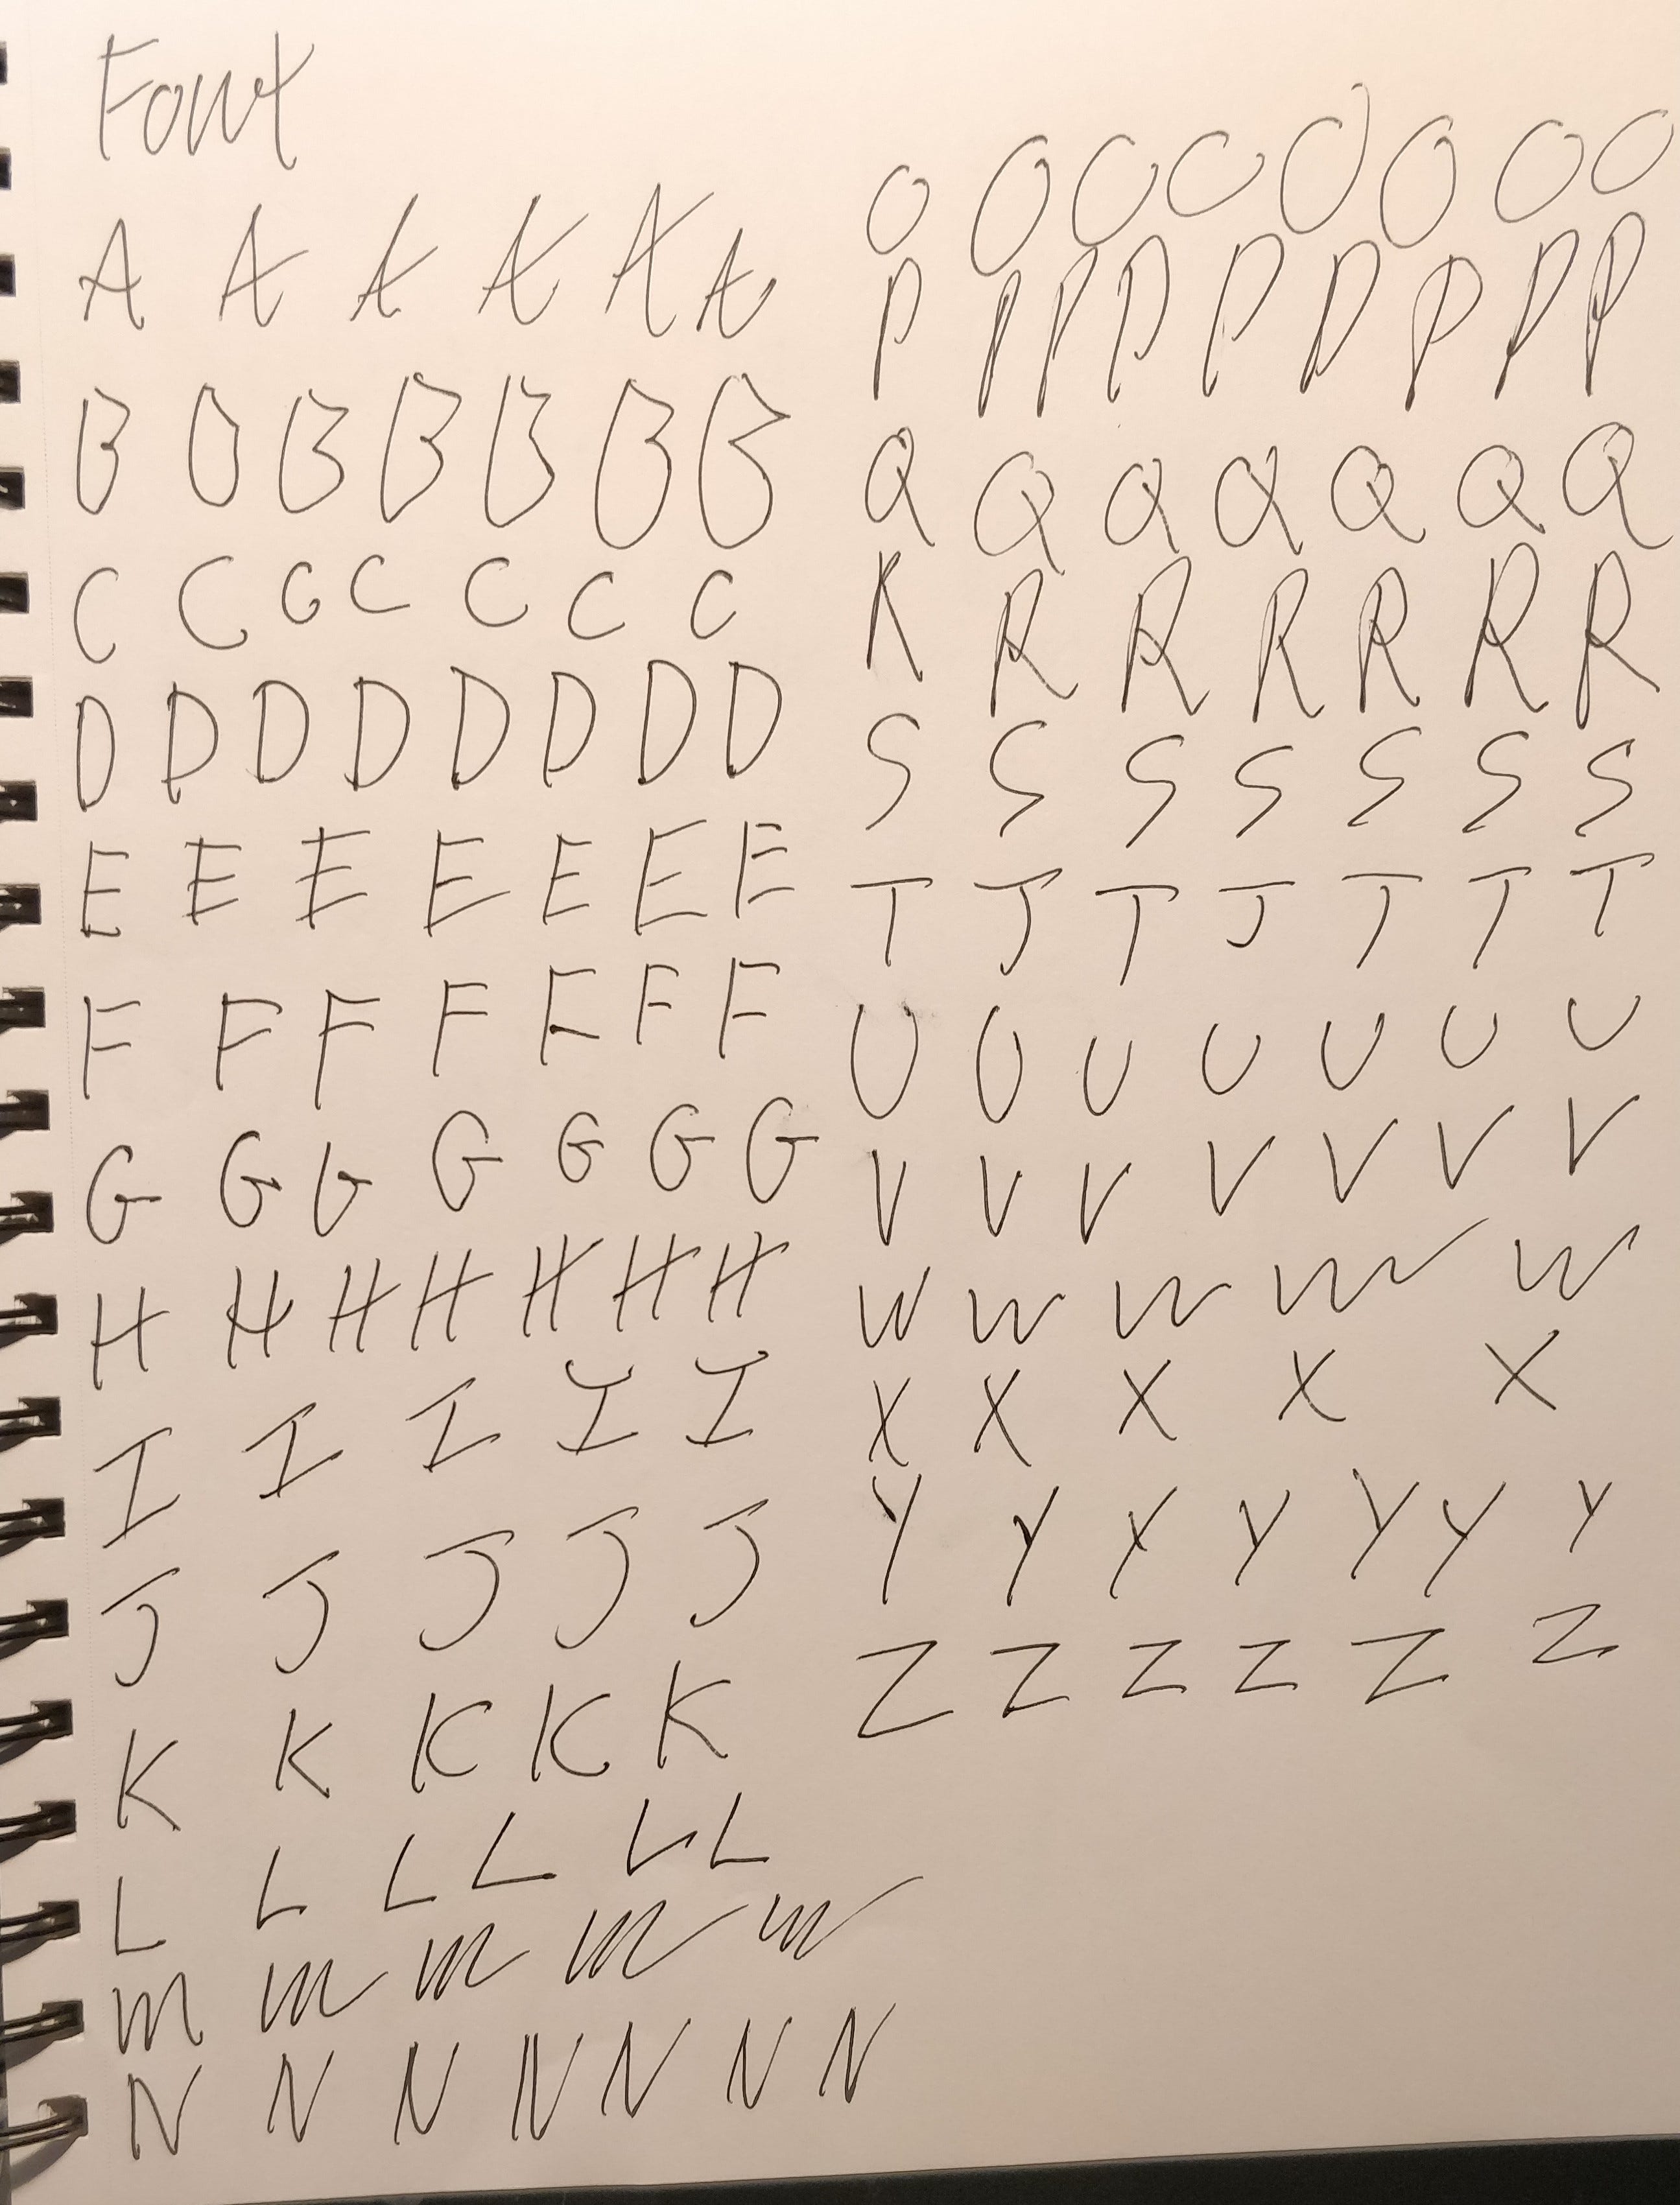 Font
A A A A A A
B B B B B B B
C C C C C C C
D D D D D D D D
E E E E E E E
F F F F F F F
G G G G G G G
H H H H H H H
I I I I I
J J J J J
K K K K K
L L L L L L
M M M M M
N N N N N N N
O O O O O O O O
P P P P P P P P P
Q Q Q Q Q Q Q
R R R R R R R
S S S S S S S
T T T T T T T
U U U U U U U
V V V V V V V
W W W W W
X X X X X
Y Y Y Y Y Y Y
Z Z Z Z Z Z